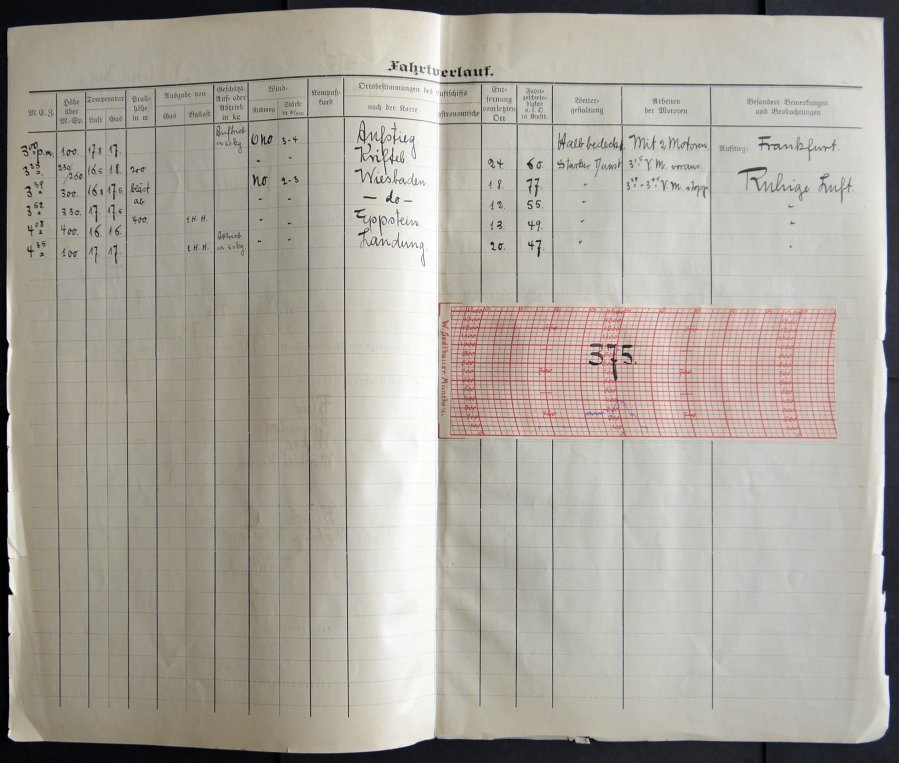 Fahrtverlauf.
M. E. Z. Höhe über M.-Sp. Temperatur Luft Gas Prall-höhe in m Ausgabe von Gas Ballast Geschätzt. Auf- oder Abtrieb in kg Wind- Richtung Stärke in m/sec Kompaß-kurs Ortsbestimmungen des Luftschiffs nach der Karte astronomische Ent-fernung vom letzten Ort Fahrt-geschwin-digkeit Wetter-gestaltung Arbeiten der Motoren Besondere Bemerkungen und Beobachtungen
3 00 p.m. 100. 17.8 17. Auftrieb ONO 3-4 Aufstieg. Halb bedeckt. Mit 2 Motoren Aufstieg: Frankfurt.
250/260 16.5 18. 200 " " Kriftel. 24 60. Starker Dunst V. M. voraus.
300. 16.8 17.5 bläst ab NO 2-3 Wiesbaden. 18. 77. " V. M. stopp Ruhige Luft.
3 52 330. 17. 17.5 " " — do — 12. 55. " "
4 08 400. 16. 16. 400. 1 H. H. " " Eppstein. 13. 49. " "
4 35 100 17. 17. 1 H. H. " " Landung. 20. 47. " "
375.